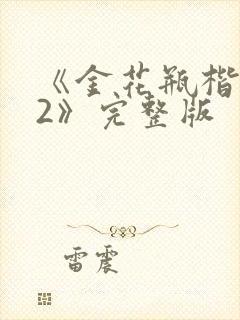 《金花瓶楷
2》完整版
雷震